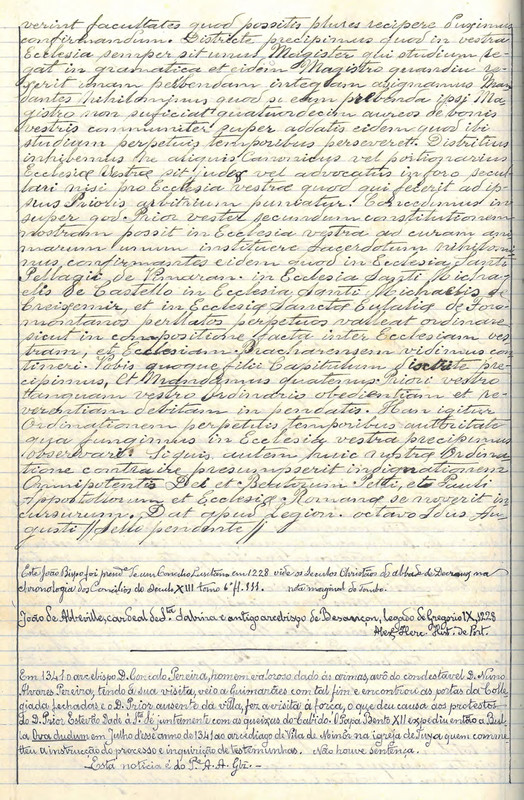 verint facultates quod possitis plures recipere duximus
confirmandum. Districte precipimus quod in vestra
Ecclesia semper sit unus Magister qui studium re-
gat in gramatica et eidem Magistro quandiu re-
xerit unam prebendam integram asignamus Man
dantes nihilominus quod se eam prebenda ipsi Ma
gistro non suficiat quatuordecim aureos de bonis
vestris communiter super addatis eidem quod ibi
studium perpetuis temporibus perseveret. Distritius
inhibemus ne aliquis Canonicus vel portionarius
Ecclesiæ Vestræ sit judex vel advocatus in foro secu
lari nisi pro Ecclesia vestræ quod qui fecerit ad ip-
sius Prioris arbitrium puniatur. Concedimus in
super qod Prior vester secundum constitutionem
nostram possit in Ecclesia vestra ad curam ani
marum unum instituere Sacerdotum nihilomi
nus confirmantes eidem quod in Ecclesia Santi
Pellagii de Vimaran. in Ecclesia Santi Michae
elis de Castello in Ecclesia Santi Michaelis de
Creixemir, et in Ecclesia Sanctæ Eulaliæ de
perpetuos valleat ordinare
sicut in compositione facta inter Ecclesiam ves
tram, et Ecclesiam Bracharensem vidimus con
tineri. Vobis quoque filii Capitulum pre-
cipimus, et Mandamus quatenus Priori vestro
tanquam vestro ordinario obedientiam et re-
verentiam debitam in pendatis. Han igitur
Ordinationem perpetuis temporibus authoritate
qua fungimus in Ecclesia vestra precipimus
observari. Siquis autem huic nostræ Ordina
tione contraire presumpserit indignationem
Omnipotentis Dei et Beatorum Petri, et Pauli
Apostollorum et Ecclesiæ Romanæ se noverit in
cursurum. Dat apud Legion. octavo Idus Au
gusti // Sello pendente //
Este João Bispo foi presid.e de um Concilio Lusitano em 1228 vide os Seculos Christãos do abbade de Decreux na
chronologia dos Concilios do Seculo XIII tomo 6º fl. 111. nota marginal do Tombo.
João de Abbeville, cardeal de S.ta Sabina e antigo arcebispo de Besançon, legado de Gregorio IX, 1228
Alex. Herc. Hist. de Port.
Em 1341 o arcebispo D. Gonçalo Pereira, homem valoroso dado às armas, avô do condestavel D. Nuno
Alvares Pereira, tendo à sua visita, veio a Guimarães com tal fim e encontrou as portas da Colle
giada fechadas e o D. Prior ausente da villa, fez a visita à força, o que deu causa aos protestos
do D. Prior Estevão Dade à S.ta Sé juntamente com as queixas do Cabido. O Papa Bento XII expediu então a Bul-
la Ova dudum em Julho desse anno de 1341 ao arcediago de Vila de Minho na igreja de Tuya quem comme
tteu a instrucção do processo e inquirição de testemunhas. Não houve sentença.
Esta noticia é do P.e A. A. Glz.